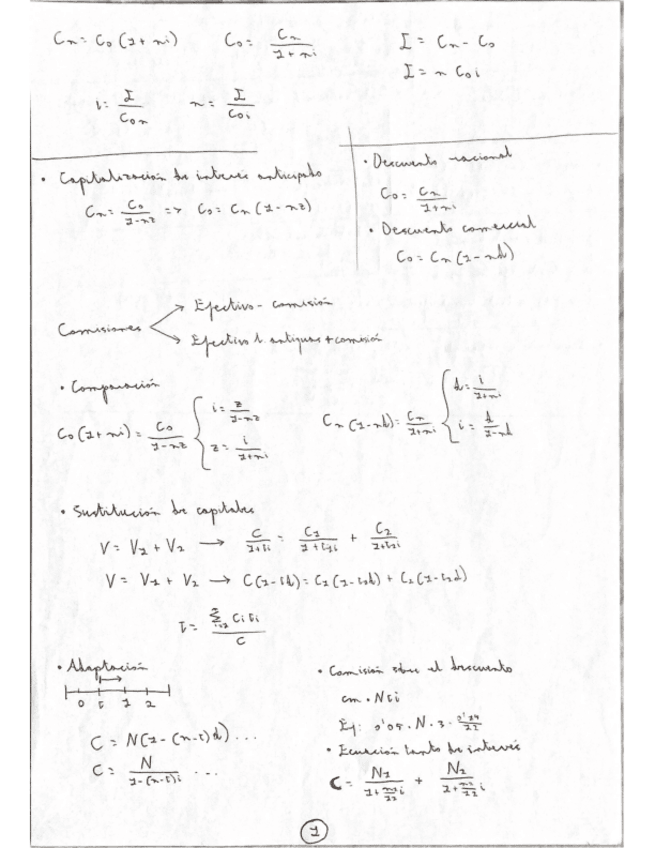 Cn = C0 (1 + ni)   C0 = Cn / (1 + ni)   I = Cn - C0
I = n C0 i
i = I / (C0 n)   n = I / (C0 i)
• Capitalización de interés anticipado
Cn = C0 / (1 - nz) => C0 = Cn (1 - nz)
• Descuento racional
C0 = Cn / (1 + ni)
• Descuento comercial
C0 = Cn (1 - nd)
Comisiones
Efectivo - comisión
Efectivo l. antiguas + comisión
• Comparación
C0 (1 + ni) = C0 / (1 - nz) { i = z / (1 - nz)
z = i / (1 + ni)
Cn (1 - nd) = Cn / (1 + ni) { d = i / (1 + ni)
i = d / (1 - nd)
• Sustitución de capitales
V = V1 + V2 → C / (1 + ti) = C1 / (1 + t1i) + C2 / (1 + t2i)
V = V1 + V2 → C (1 - td) = C1 (1 - t1d) + C2 (1 - t2d)
• Adaptación
0 t 1 2
C = N (1 - (n - t) d) ...
C = N / (1 - (n - t) i) ...
• Comisión sobre el descuento
cm • N t i
• Ecuación tanto de interés
1